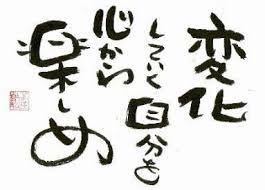 変化
していく
自分を
心から
楽しめ